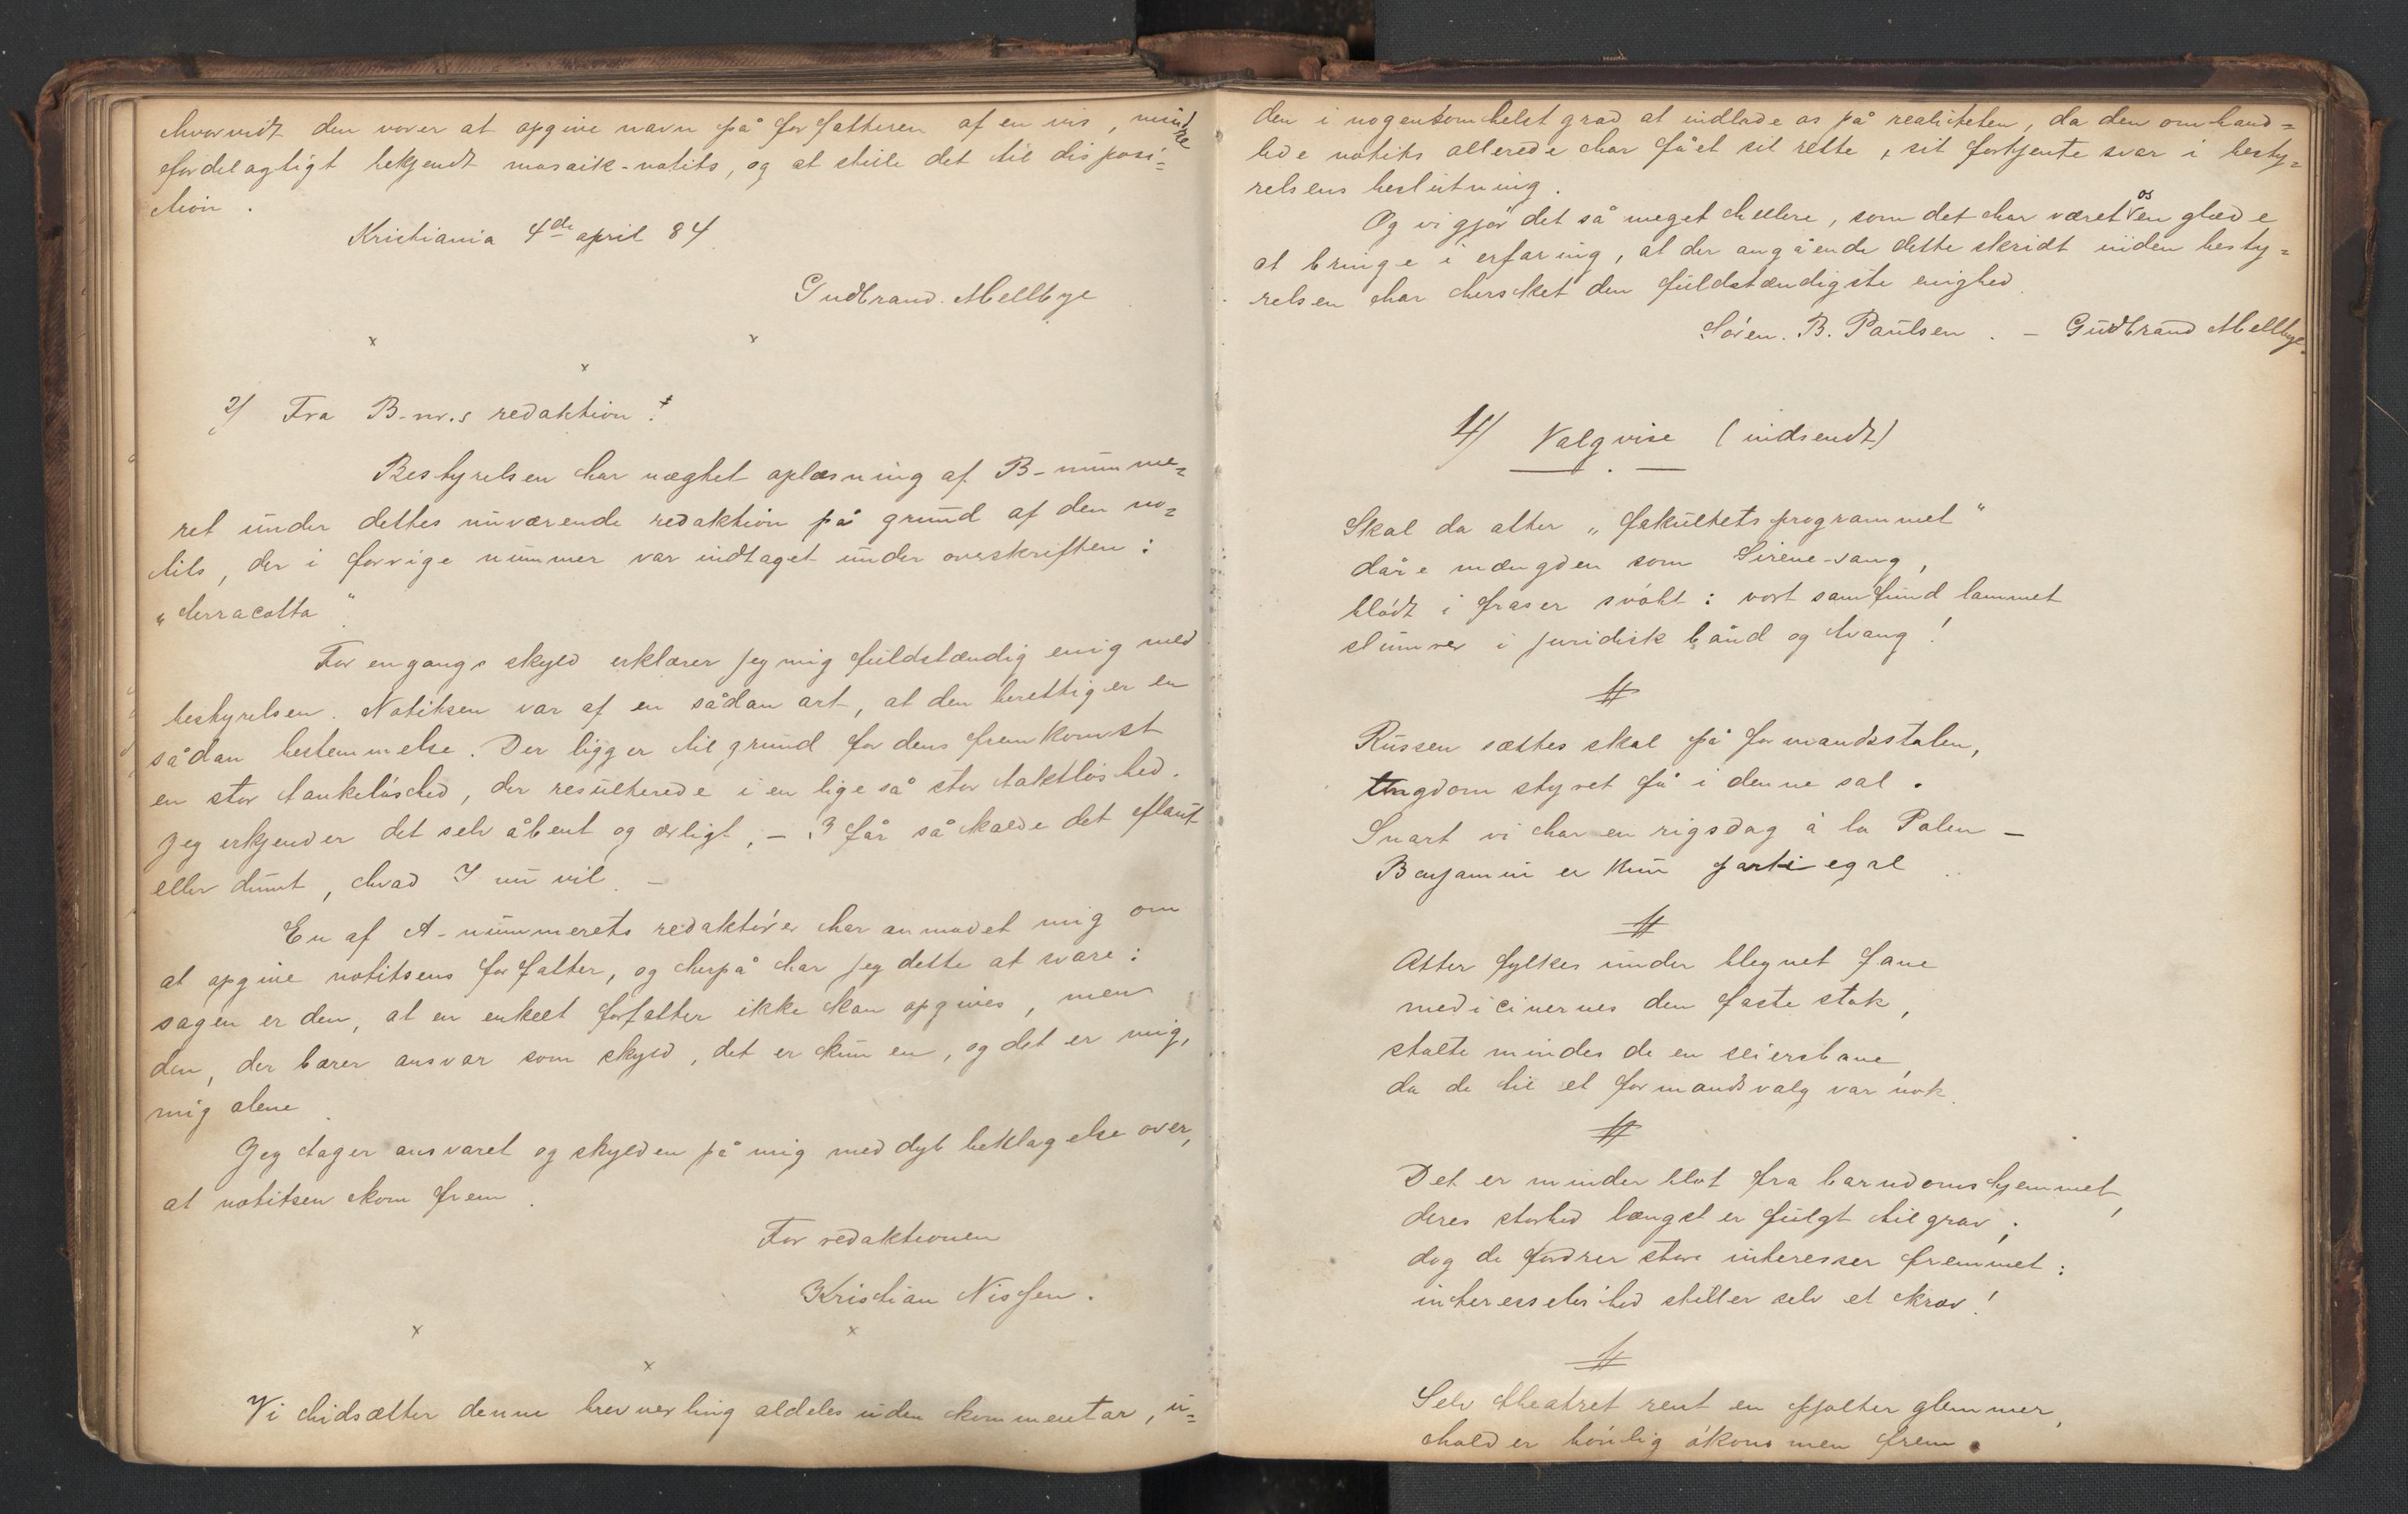 hvorvidt den vover at opgive navn på forfatteren af en vis, mindre
fordelagtigt bekjendt mosaik-notits, og at stille det til disposi=
tion.
Kristiania 4de april 84
Gudbrand. Mellbye
x x
x
2) Fra B-nr.s redaktion:
Bestyrelsen har nægtet oplæsning af B-numme=
ret under dettes nuværende redaktion på grund af den no=
tits, der i forrige nummer var indtaget under overskriften:
"terracotta"
For engangs skyld erklærer jeg mig fuldstændig enig med
bestyrelsen. Notitsen var af en sådan art, at den berettiger en
sådan bestemmelse. Der ligger til grund for dens fremkomst
en stor tankeløshed, der resulterede i en lige så stor taktløshed.
Jeg erkjender det selv åbent og ærligt, – I får så kalde det flaut
eller dumt, hvad I nu vil. –
En af A-nummerets redaktører har anmodet mig om
at opgive notitsens forfatter, og herpå har jeg dette at svare:
sagen er den, at en enkelt forfatter ikke kan opgives, men
den, der bærer ansvar som skyld, det er kun en, og det er mig,
mig alene.
Jeg tager ansvaret og skylden på mig med dyb beklagelse over,
at notitsen kom frem.
For redaktionen
Kristian Nissen.
x x
x
Vi hidsætter denne brevvexling aldeles uden kommentar, u=
den i nogensomhelst grad at indlade os på realiteten, da den omhand=
lede notits allerede har fået sit rette, sit fortjente svar i besty=
relsens beslutning.
Og vi gjør det så meget hellere, som det har været os en glæde
at bringe i erfaring, at der angående dette skridt inden besty=
relsen har hersket den fuldstændigste enighed.
Søren. B. Paulsen. – Gudbrand Mellbye.
4) Valgvise (indsendt)
Skal da atter "fakultetsprogrammet"
dåre mængden som Sirene-sang,
blødt i fraser svøbt: vort samfund lammet
slumrer i juridisk bånd og tvang!
Russen sættes skal på formandsstolen,
Ungdom styret få i denne sal.
Snart vi har en rigsdag à la Polen –
Benjamin er kun parti egal.
Atter fylkes under blegnet fane
medicinernes den faste stok,
stolte mindes de en seiersbane,
da de til et formandsvalg var nok.
Det er minder blot fra barndomshjemmet,
deres storhed længst er fulgt til grav;
dog de fordrer store interesser fremmet:
interesseløshed stiller selv et krav!
Selv theatret rent en pjalter glemmer,
holder hønlig økonomen frem.